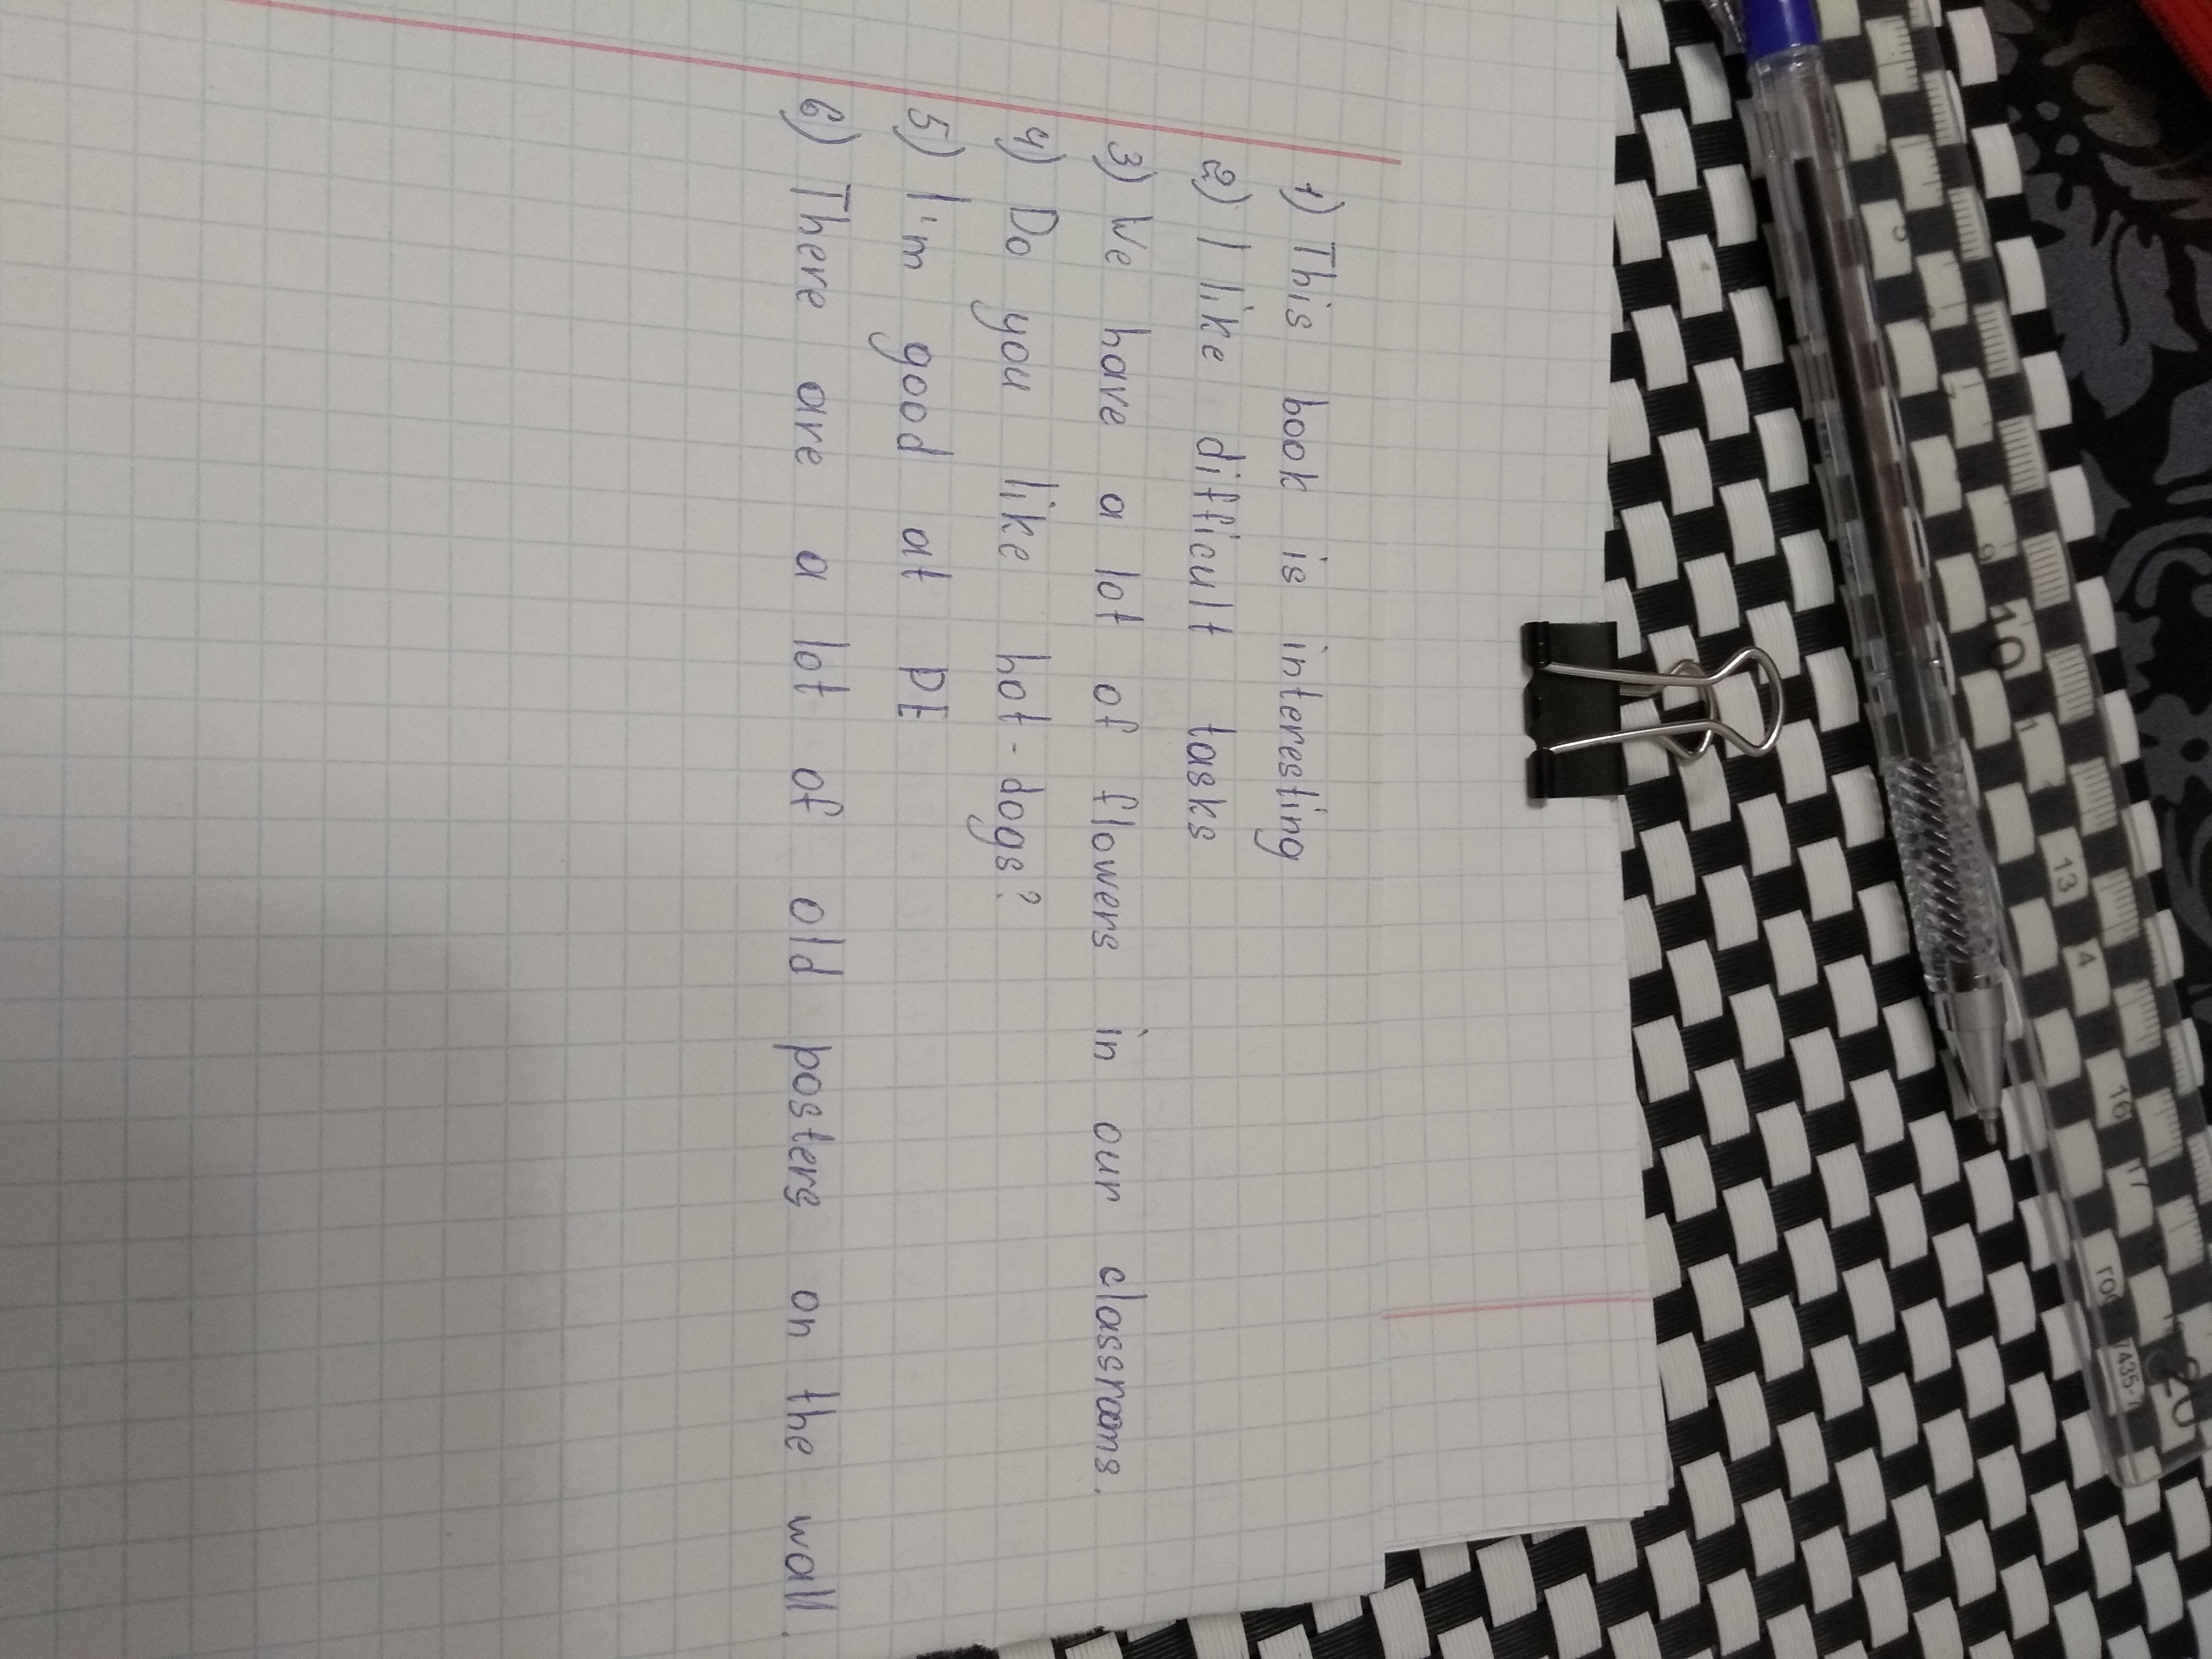 1) This book is interesting
2) I like difficult tasks
3) We have a lot of flowers in our classrooms.
4) Do you like hot-dogs?
5) I'm good at PE
6) There are a lot of old posters on the wall.
10
13
16
17
20